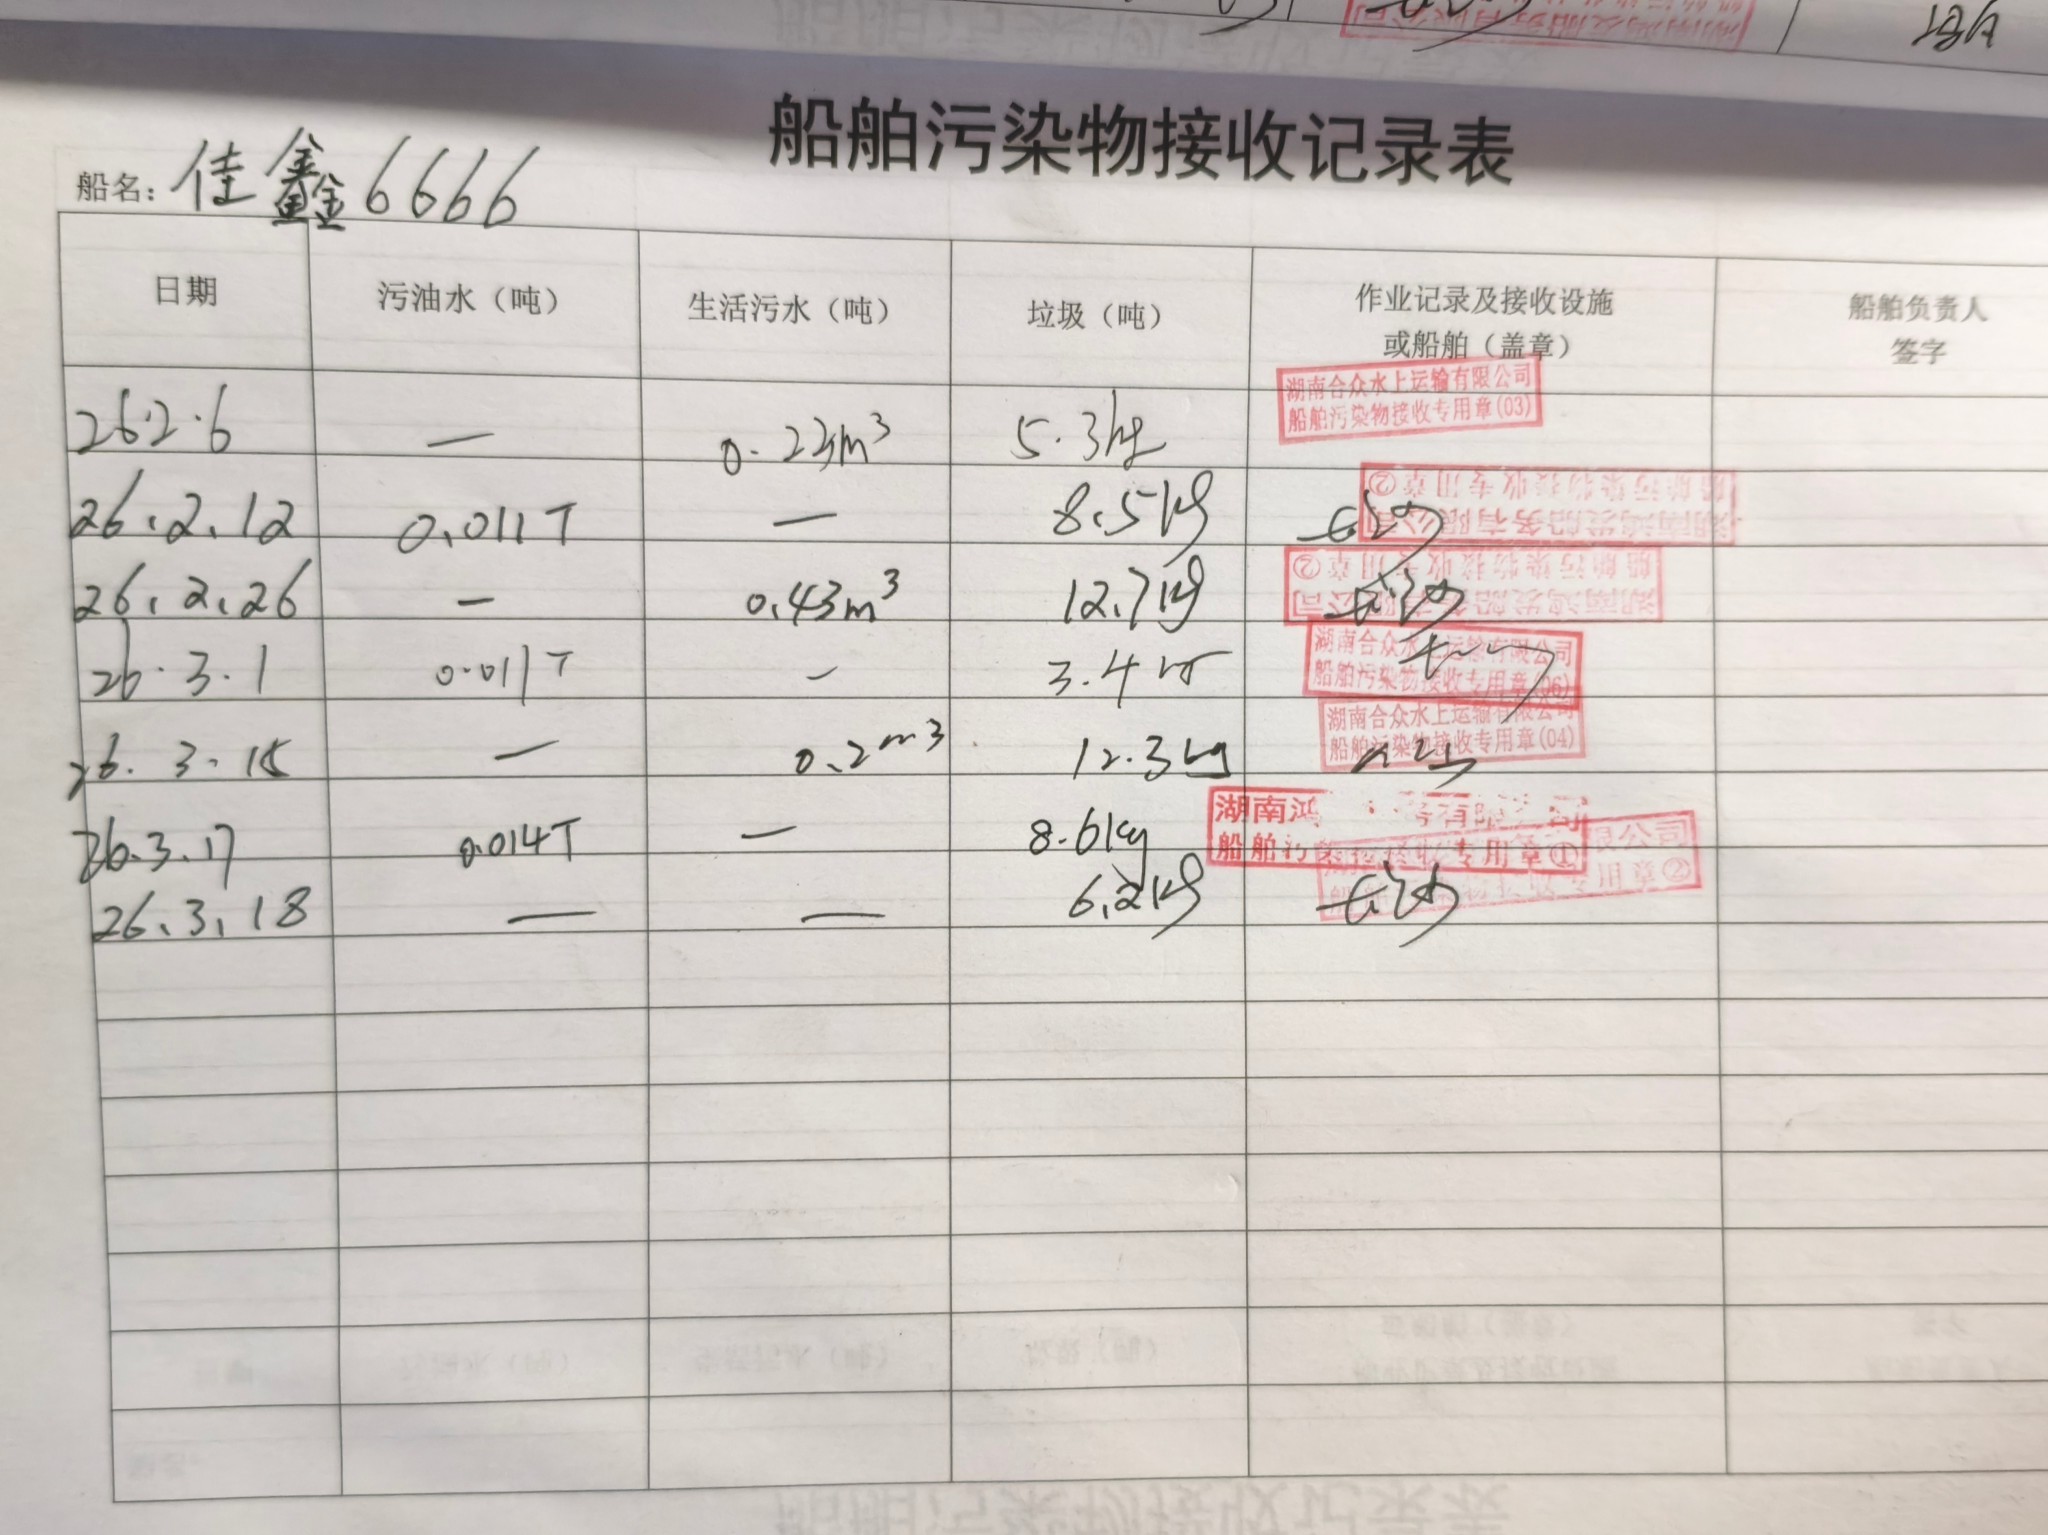 船舶污染物接收记录表
船名: 佳鑫6666
日期 污油水（吨） 生活污水（吨） 垃圾（吨） 作业记录及接收设施或船舶（盖章） 船舶负责人签字
26.2.6 — 0.23m³ 5.3kg 湖南合众水上运输有限公司 船舶污染物接收专用章(03)
26.2.12 0.011T — 8.5kg 长沙 湖南鸿发船务有限公司 船舶污染物接收专用章②
26.2.26 — 0.43m³ 12.7kg 长沙 湖南鸿发船务有限公司 船舶污染物接收专用章②
26.3.1 0.011T - 3.4 湖南合众水上运输有限公司 船舶污染物接收专用章(06)
26.3.15 — 0.2m³ 12.3kg 湖南合众水上运输有限公司 船舶污染物接收专用章(04)
26.3.17 0.014T — 8.6kg 湖南鸿 务有限公司 船舶污 接收专用章①
26.3.18 — — 6.2kg 长沙 限公司 接收专用章②